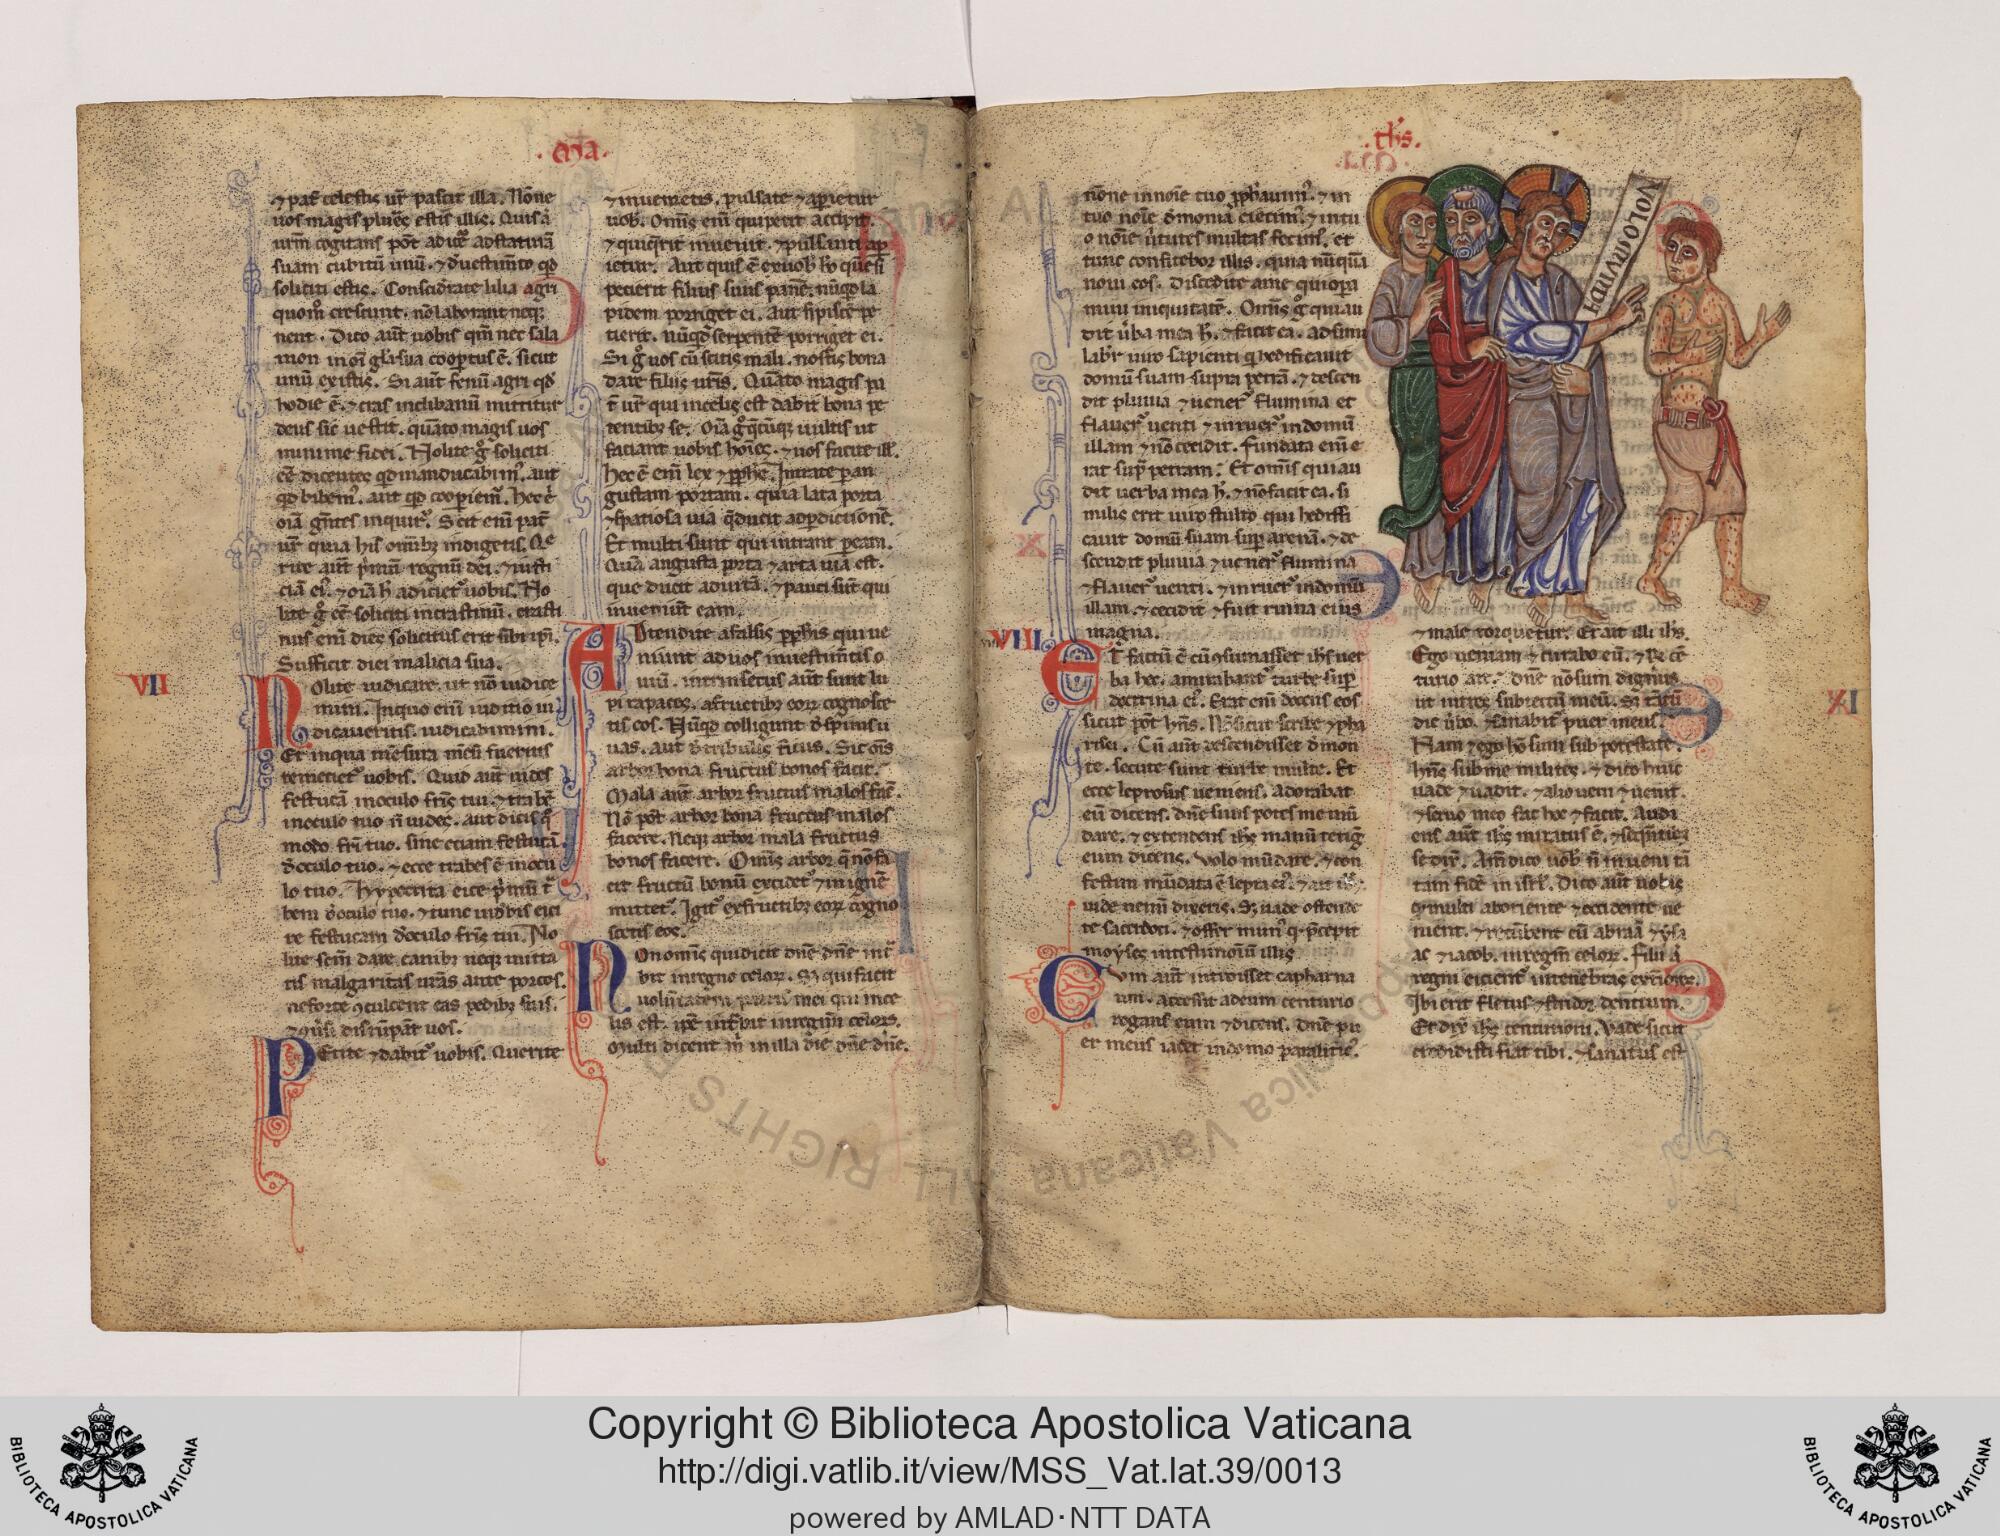 · Ma ·
⁊ pat̄ celestis ur̄ pascit illa. Nōne
uos magis plures estis illis. Quis aut̄
ur̄m cogitans pōt adicē ad staturā
suam cubitū unū. ⁊ d̄ uestim̄to qd̄
soliciti estis. Considerate lilia agri
quom̊ crescunt. nō laborant neq;
nent. Dico aut̄ uobis qm̄ nec sala
mon in om̄i gl̄a sua coopertus ē. sicut
unū ex istis. Si aut̄ fenū agri qd̄
hodie ē. ⁊ cras in clibanū mittitur
deus sic uestit. quāto magis uos
minime fidei. Nolite ḡ soliciti
eē dicentes qd manducabim'. aut
qd bibem'. aut qd cooperiem'. Hec ē
oīa gentes inquir̄t. Scit enī pat̄
ur̄ quia his om̄ibz indigetis. Que
rite aut̄ p̄mū regnū dei. ⁊ iusti
ciā ei'. ⁊ oīa h̄ adicient' uobis. No
lite ḡ eē soliciti in crastinū. crasti
nus enī dies solicitus erit sibi ip̄i.
Sufficit diei malicia sua.
VII
Nolite iudicare. ut nō iudice
mini. In quo enī iuditio iu
dicaueritis. iudicabimini.
Et in qua mēsura mēsi fueritis
remetiet' uobis. Quid aut̄ uides
festucā in oculo fr̄is tui. ⁊ trabē
in oculo tuo n̄ uides. aut dicis
modo fr̄i tuo. sine eiciam festucā
d̄ oculo tuo. ⁊ ecce trabes ē in ocu
lo tuo. Hypocrita eice p̄mū t̄
bem d̄ oculo tuo. ⁊ tunc uidebis eici
re festucam d̄ oculo fr̄is tui. No
lite scm̄ dare canibz neq; mitta
tis malgaritas ur̄as ante porcos.
ne forte ꝯculcent eas pedibz suis.
⁊ ꝯūsi disrūpāt uos.
Petite ⁊ dabit' uobis. Querite
⁊ inuenietis. pulsate ⁊ aperietur
uob̄. Om̄is enī qui petit accipit.
⁊ qui querit inuenit. ⁊ pulsanti ap
ietur. Aut quis ē ex uob̄ hō quē si
petierit filius suus panē. nūqd la
pidem porriget ei. Aut si piscē pe
tierit. nūqd serpentē porriget ei.
Si ḡ uos cū sitis mali. nostis bona
dare filiis ur̄is. Quāto magis pa
t̄ ur̄ qui in celis est dabit bona pe
tentibz se. Oīa ḡ quecūq; uultis ut
faciant uobis hoīes. ⁊ uos facite ill'.
Hec ē enī lex ⁊ pph̄e. Intrate p an
gustam portam. quia lata porta
⁊ spatiosa uia que ducit ad pdictionē.
Et multi sunt qui intrant p eam.
Quā angusta porta ⁊ arta uia est.
que ducit ad uitā. ⁊ pauci sūt qui
inueniūt eam.
Attendite a falsis pph̄is qui ue
niunt ad uos in uestim̄tis o
uiū. intrinsecus aut̄ sunt lu
pi rapaces. a fructibz eorū cognosce
tis eos. Nūqd colligunt d̄ spinis u
uas. aut d̄ tribulis ficus. Sic om̄is
arbor bona fructus bonos facit.
Mala aut̄ arbor fructus malos facit.
Nō pōt arbor bona fructus malos
facere. Neq; arbor mala fructus
bonos facere. Om̄is arbor q̄ nō fa
cit fructū bonū excidet' ⁊ in ignē
mittet'. Igit' ex fructibz eorū cogno
scetis eos.
Non om̄is qui dicit dn̄e dn̄e int̄
bit in regno celorū. Sz qui facit
uolūtatem patris mei qui in ce
lis est. ipē intrabit in regnū celorū.
Multi dicent m̄ in illa die dn̄e dn̄e.
· ths ·
nōne in noīe tuo pph̄auim'. ⁊ in
tuo noīe d̄monia eiecim'. ⁊ in tu
o noīe ūtutes multas fecim'. et
tunc confitebor illis. quia nūquā
noui eos. Discedite a me qui opa
mini iniquitatē. Om̄is ḡ qui au
dit ūba mea h̄. ⁊ facit ea. adsimi
labit̄ uiro sapienti qui hedificauit
domū suam supra petrā. ⁊ descen
dit pluuia ⁊ uener̄ flumina et
flauer̄ uenti ⁊ inruer̄ in domū
illam ⁊ nō cecidit. fundata enī e
rat sup̄ petram. Et om̄is qui au
dit uerba mea h̄. ⁊ nō facit ea. si
milis erit uiro stulto qui hediffi
cauit domū suam sup̄ arenā. ⁊ de
scendit pluuia ⁊ uener̄ flumina
⁊ flauer̄ uenti. ⁊ inruer̄ in domū
illam. ⁊ cecidit ⁊ fuit ruina eius
magna.
VIII
Et factū ē cū ꝯsumasset ih̄s uer
ba hec. amirabant̄ turbe sup̄
doctrina ei'. Erat enī docens eos
sicut potestatē hn̄s. Nō sicut scribe ⁊ pha
risei. Cū aut̄ descendisset d̄ mon
te. secute sunt turbe multe. Et
ecce leprosus ueniens. adorabat
eū dicens. dn̄e si uis potes me mū
dare. ⁊ extendens ih̄s manū tetiḡ
eum dicens. Volo mūdare. ⁊ con
festim mūdata ē lepra ei'. ⁊ ait
uide nemini dixeris. Sz uade ostende
te sacerdoti. ⁊ offer mun' q̄ p̄cepit
moyses in testimoniū illis.
Cum aut̄ introisset capharna
um. accessit ad eum centurio
rogans eum ⁊ dicens. dn̄e pu
er meus iacet in domo paraliticus.
VOLO MVNDA
⁊ male torquetur. Et ait illi ih̄s.
Ego ueniam ⁊ curabo eū. ⁊ R̄ cē
turio ait. Dn̄e nō sum dignus
ut intres sub tectū meū. Sz tātū
dic ūbo. ⁊ sanabit̄ puer meus.
XI
Nam ⁊ ego hō sum sub potestate.
hn̄s sub me milites. ⁊ dico huic
uade ⁊ uadit. ⁊ alio ueni ⁊ uenit.
⁊ seruo meo fac hoc ⁊ facit. Audi
ens aut̄ ih̄s miratus ē. ⁊ sequentibz
se dix̄. Am̄ dico uob̄ n̄ inueni tā
tam fidē in isrl̄. Dico aut̄ uobis
q multi ab oriente ⁊ occidente ue
nient. ⁊ recūbent cū abraā ⁊ ysa
ac ⁊ iacob. in regnū celorū. Filii ā
regni eicient' in tenebras exteriores.
Ibi erit fletus ⁊ stridor dentium.
Et dix̄ ih̄s centurioni. Vade sicut
credidisti fiat tibi. ⁊ sanatus est
Copyright © Biblioteca Apostolica Vaticana
http://digi.vatlib.it/view/MSS_Vat.lat.39/0013
powered by AMLAD·NTT DATA
BIBLIOTECA APOSTOLICA VATICANA
BIBLIOTECA APOSTOLICA VATICANA